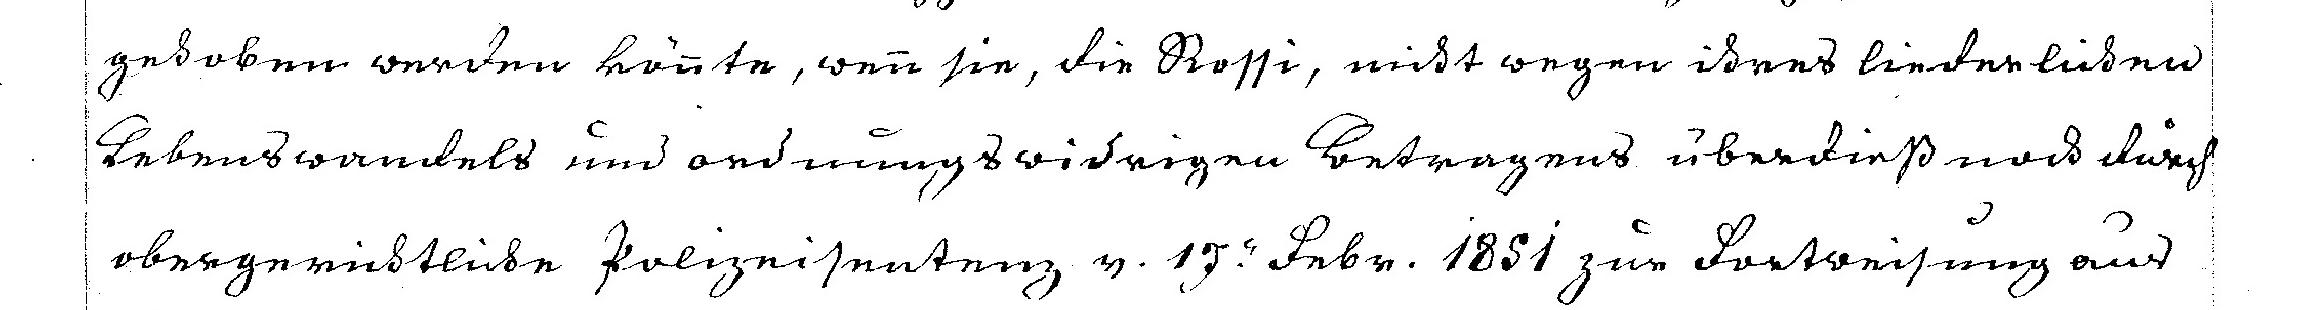 gehoben werden könnte, wenn sie, die Rossi, nicht wegen ihres liederlichen
Lebenswandels und ordnungswidrigen Betragens überdieß noch durch
obergerichtliche Polizeisentenz v. 17. Febr. 1851 zur Fortweisung aus